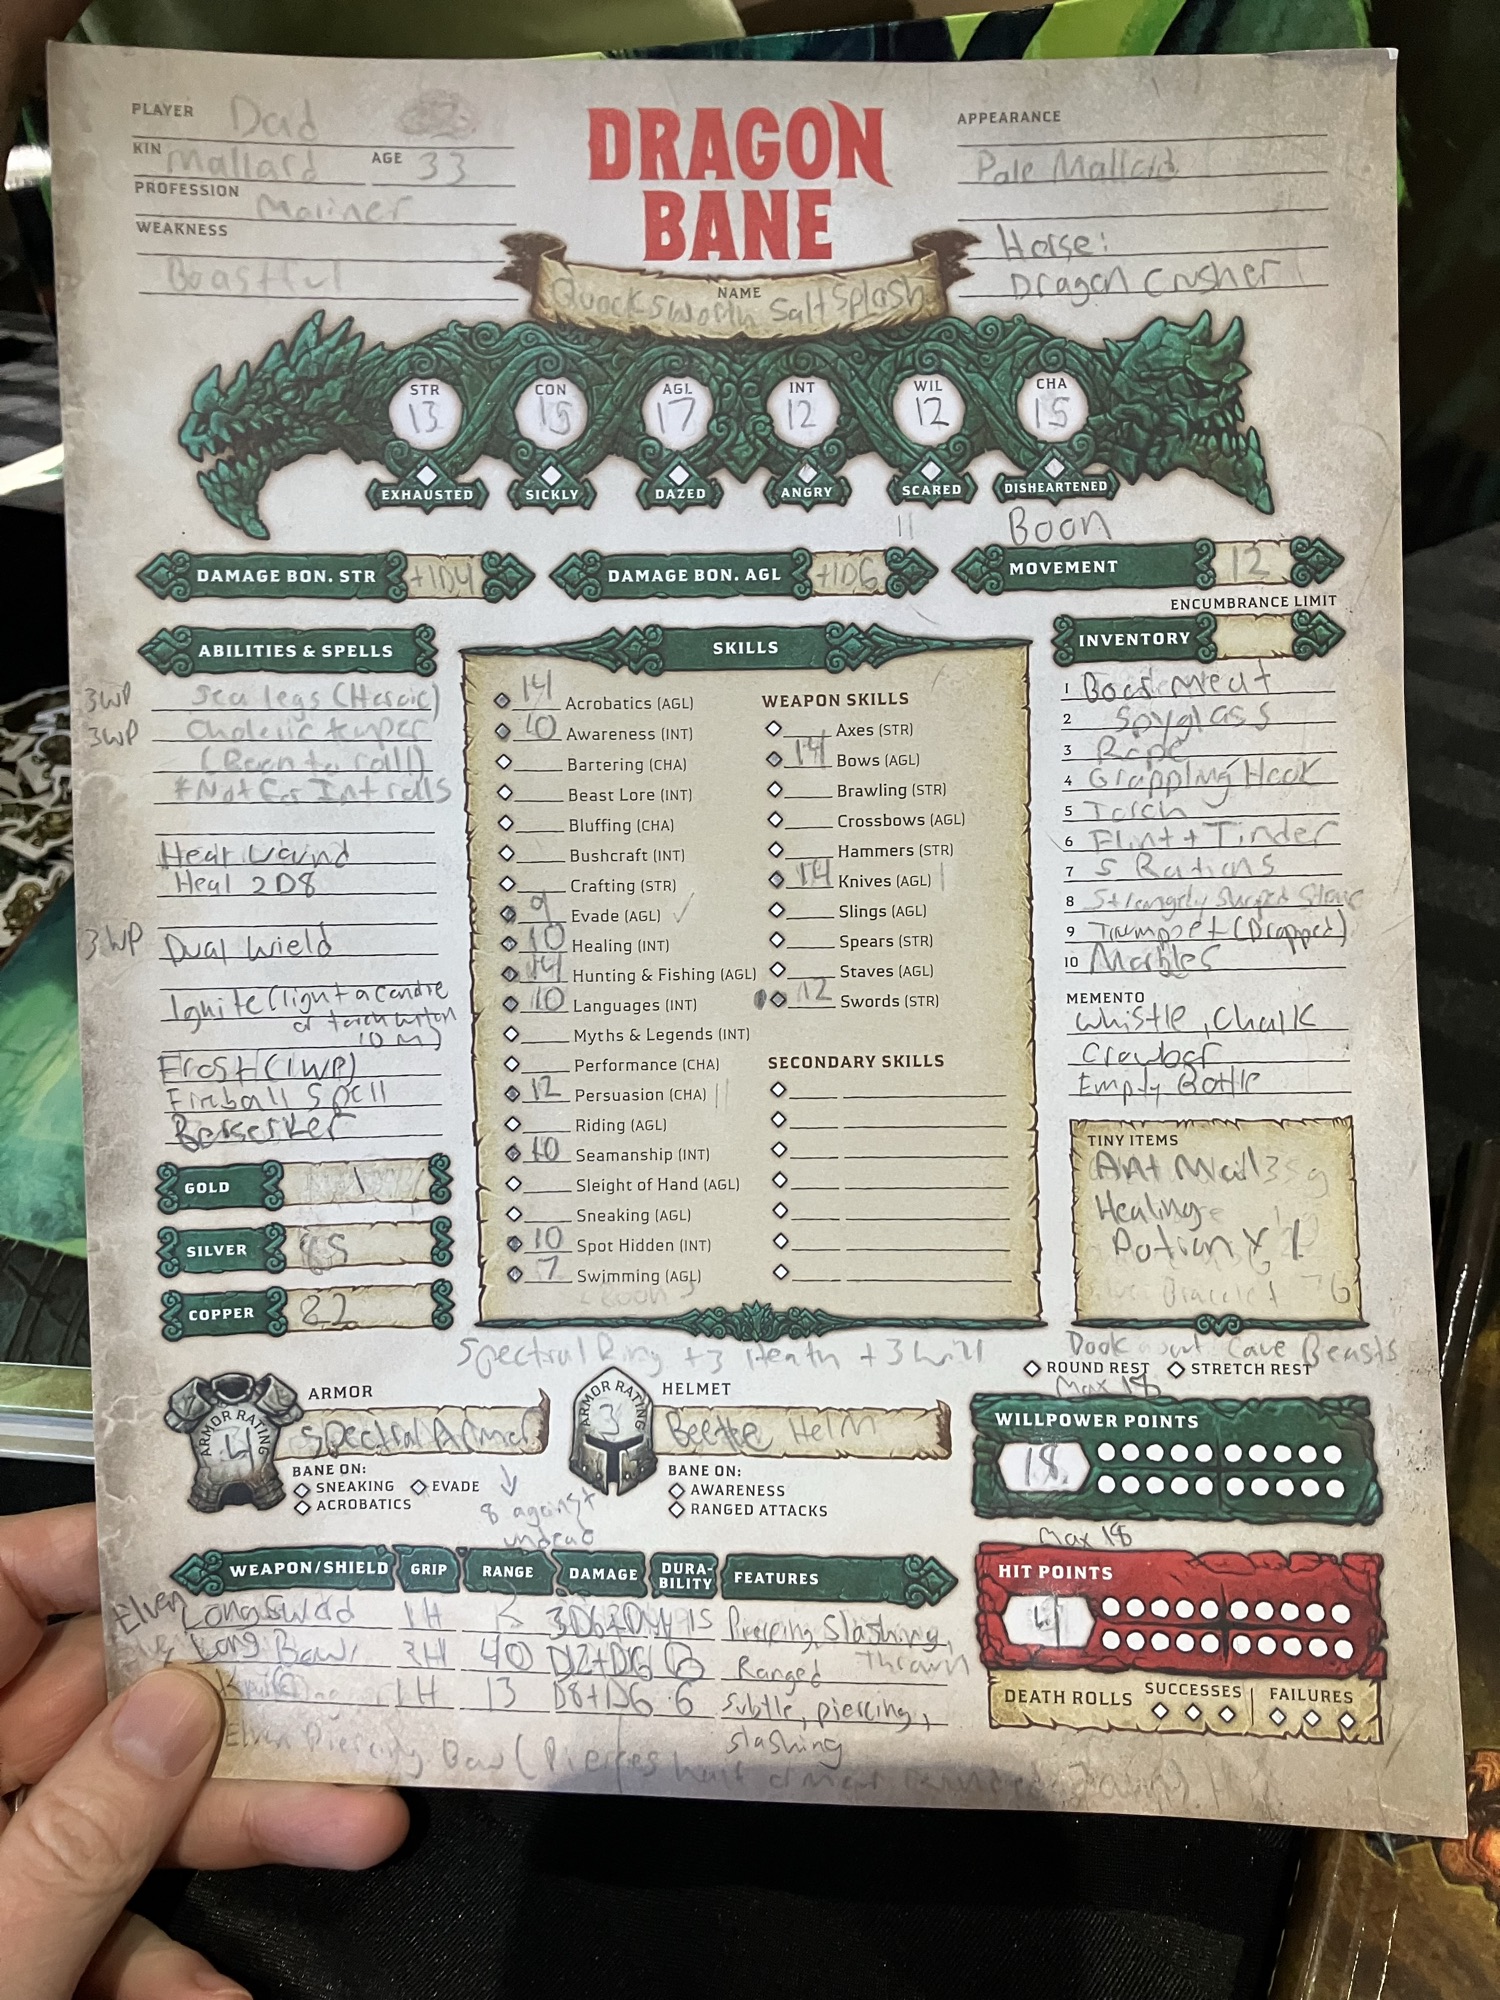 PLAYER Dad
KIN Mallard AGE 33
PROFESSION Mariner
WEAKNESS
Boastful
DRAGON
BANE
NAME
Quacksworth Salt Splash
APPEARANCE
Pale Mallard
Horse:
Dragon Crusher
STR CON AGL INT WIL CHA
13 15 17 12 12 15
EXHAUSTED SICKLY DAZED ANGRY SCARED DISHEARTENED
11 Boon
DAMAGE BON. STR +1D4 DAMAGE BON. AGL +1D6 MOVEMENT 12
ENCUMBRANCE LIMIT
ABILITIES & SPELLS
3WP Sea legs (Heroic)
3WP Choleric temper
(Boon to roll)
*Not for Int rolls
Heal Wound
Heal 2D8
3WP Dual Wield
Ignite (light a candle
or torch within
10 m)
Frost (1WP)
Fireball Spell
Berserker
GOLD 1
SILVER 85
COPPER 22
SKILLS
14 Acrobatics (AGL)
10 Awareness (INT)
Bartering (CHA)
Beast Lore (INT)
Bluffing (CHA)
Bushcraft (INT)
Crafting (STR)
9 Evade (AGL) ✓
10 Healing (INT)
14 Hunting & Fishing (AGL)
10 Languages (INT)
Myths & Legends (INT)
Performance (CHA)
12 Persuasion (CHA)
Riding (AGL)
10 Seamanship (INT)
Sleight of Hand (AGL)
Sneaking (AGL)
10 Spot Hidden (INT)
7 Swimming (AGL)
WEAPON SKILLS
Axes (STR)
14 Bows (AGL)
Brawling (STR)
Crossbows (AGL)
Hammers (STR)
14 Knives (AGL)
Slings (AGL)
Spears (STR)
Staves (AGL)
12 Swords (STR)
SECONDARY SKILLS
INVENTORY
1 Boar meat
2 Spyglass
3 Rope
4 Grappling Hook
5 Torch
6 Flint + Tinder
7 5 Rations
8 Strangely Shaped Stone
9 Trumpet (Dropped)
10 Marbles
MEMENTO
Whistle, Chalk
Crowbar
Empty Bottle
TINY ITEMS
Ant Nail
Healing
Potion x 1
Bracelet
Book about Cave Beasts
Spectral Ring +3 Heath +3 Will
ROUND REST STRETCH REST
ARMOR
ARMOR RATING
4 Spectral Armor
BANE ON:
SNEAKING EVADE
ACROBATICS
8 against
undead
HELMET
ARMOR RATING
3 Beetle Helm
BANE ON:
AWARENESS
RANGED ATTACKS
Max 18
WILLPOWER POINTS
18
Max 18
HIT POINTS
DEATH ROLLS SUCCESSES FAILURES
WEAPON/SHIELD GRIP RANGE DAMAGE DURABILITY FEATURES
Elven Longsword 1H 15 Piercing, Slashing,
Long Bow 2H 40 D12+D6 Ranged Thrown
Knife 1H 13 D8+D6 6 Subtle, piercing,
slashing
Elven Piercing Bow (Pierces half armor